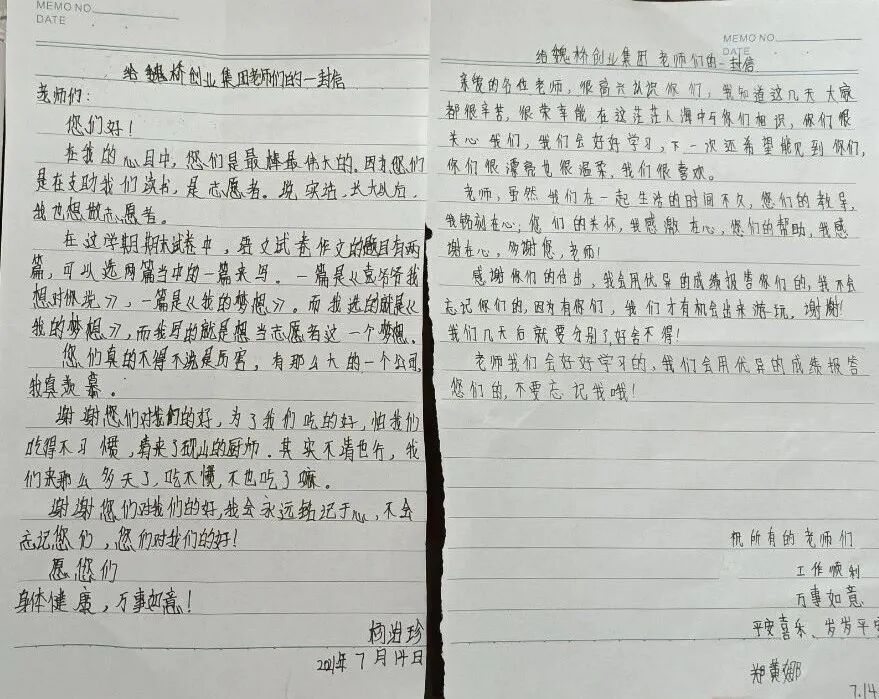 MEMO NO.
DATE
给魏桥创业集团老师们的一封信
老师们:
您们好!
在我的心目中,您们是最棒最伟大的。因为您们
是在支助我们读书,是志愿者。说实话,长大以后,
我也想做志愿者。
在这学期期末试卷中,语文试卷作文的题目有两
篇,可以选两篇当中的一篇来写。一篇是《袁爷爷我
想对你说》,一篇是《我的梦想》。而我选的就是《
我的梦想》,而我写的就是想当志愿者这一个梦想。
您们真的不得不说是厉害,有那么大的一个公司,
我真羡慕。
谢谢您们对我们的好,为了我们吃的好,怕我们
吃得不习惯,请来了砚山的厨师。其实不请也行,我
们来那么多天了,吃不惯,不也吃了嘛。
谢谢您们对我们的好,我会永远铭记于心,不会
忘记您们,您们对我们的好!
愿您们
身体健康,万事如意!
珍
2021年7月14日
MEMO NO.
DATE
给魏桥创业集团老师们的一封信
亲爱的各位老师,很高兴认识你们,我知道这几天大家
都很辛苦,很荣幸能在这茫茫人海中与你们相识,你们很
关心我们,我们会好好学习,下一次还希望能见到你们,
你们很漂亮也很温柔,我们很喜欢。
老师,虽然我们在一起生活的时间不久,您们的教导,
我铭刻在心;您们的关怀,我感激在心,您们的帮助,我感
谢在心,多谢您,老师!
感谢你们的付出,我会用优异的成绩报答你们的,我不会
忘记你们的,因为有你们,我们才有机会出来游玩。谢谢!
我们几天后就要分别了,好舍不得!
老师我们会好好学习的,我们会用优异的成绩报答
您们的,不要忘记我哦!
祝所有的老师们
工作顺利
万事如意
平安喜乐、岁岁平安
郑黄娜
7.14